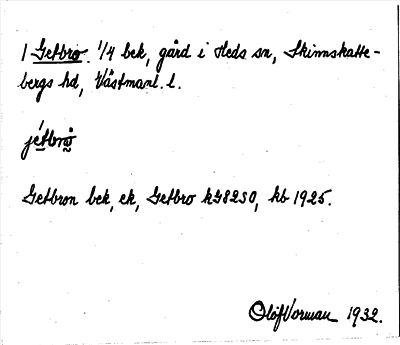 1 Getbro. 1/4 bek, gård i Heds sn, Skinnskatte-
bergs hd, Västmanl. l.
jétbrω̊
Getbron bek, ek, Getbro kG82S0, kb 1925.
Olof Vorman 1932.